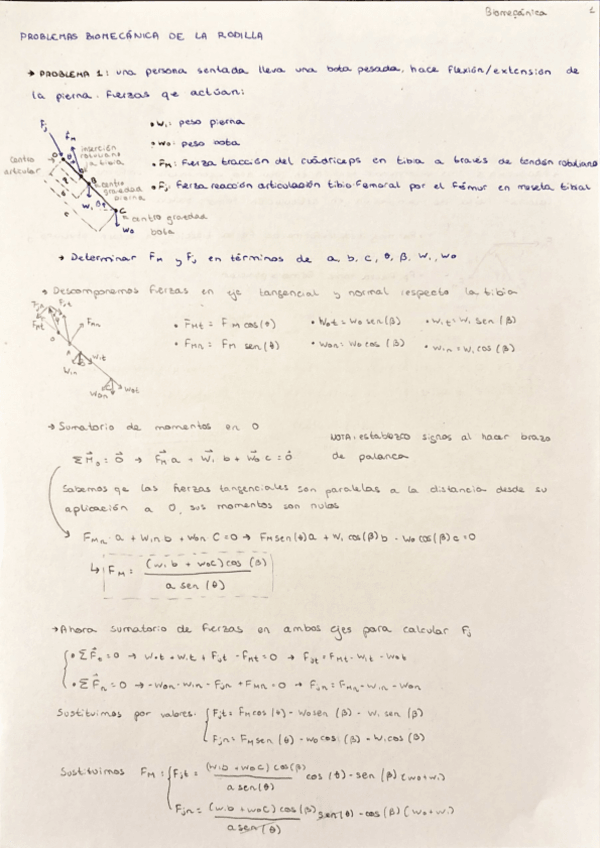 Biomecánica 1
PROBLEMAS BIOMECÁNICA DE LA RODILLA
→ PROBLEMA 1: una persona sentada lleva una bota pesada, hace flexión/extensión de
la pierna. Fuerzas qe actúan:
• W₁: peso pierna
• W₀: peso bota
• F_M: Fuerza tracción del cuádriceps en tibia a través de tendón rotuliano
• F_J: Fuerza reacción articulación tibio femoral por el fémur en meseta tibial
F_J F_M
inserción
rotuliano
tibia
centro
articular
O
a
b
c
B
centro
gravedad
pierna
W₁
C
centro gravedad
bota
W₀
→ Determinar F_M y F_J en términos de a, b, c, θ, β, W₁, W₀
→ Descomponemos fuerzas en eje tangencial y normal respecto la tibia
• F_Mt = F_M cos(θ) • W₀t = W₀ sen(β) • W₁t = W₁ sen(β)
• F_Mn = F_M sen(θ) • W₀n = W₀ cos(β) • W₁n = W₁ cos(β)
F_Jt
F_Mt
F_Mn
W₁t
W₁n
W₀n
W₀t
→ Sumatorio de momentos en O
NOTA: establezco signos al hacer brazo
de palanca
ΣM⃗₀ = 0⃗ → F⃗_M a + W⃗₁ b + W⃗₀ c = 0⃗
Sabemos qe las fuerzas tangenciales son paralelas a la distancia desde su
aplicación a O, sus momentos son nulos
F_Mn · a + W₁n b + W₀n C = 0 → F_M sen(θ) a + W₁ cos(β) b - W₀ cos(β) c = 0
↳ F_M = (W₁b + W₀c) cos(β) / a sen(θ)
→ Ahora sumatorio de fuerzas en ambos ejes para calcular F_J
• ΣF⃗_t = 0 → W₀t + W₁t + F_Jt - F_Mt = 0 → F_Jt = F_Mt - W₁t - W₀t
• ΣF⃗_n = 0 → -W₀n - W₁n - F_Jn + F_Mn = 0 → F_Jn = F_Mn - W₁n - W₀n
Sustituimos por valores: F_Jt = F_M cos(θ) - W₀ sen(β) - W₁ sen(β)
F_Jn = F_M sen(θ) - W₀ cos(β) - W₁ cos(β)
Sustituimos F_M: F_Jt = (W₁b + W₀c) cos(β) / a sen(θ) cos(θ) - sen(β) (W₀ + W₁)
F_Jn = (W₁b + W₀c) cos(β) / a sen(θ) sen(θ) - cos(β) (W₀ + W₁)